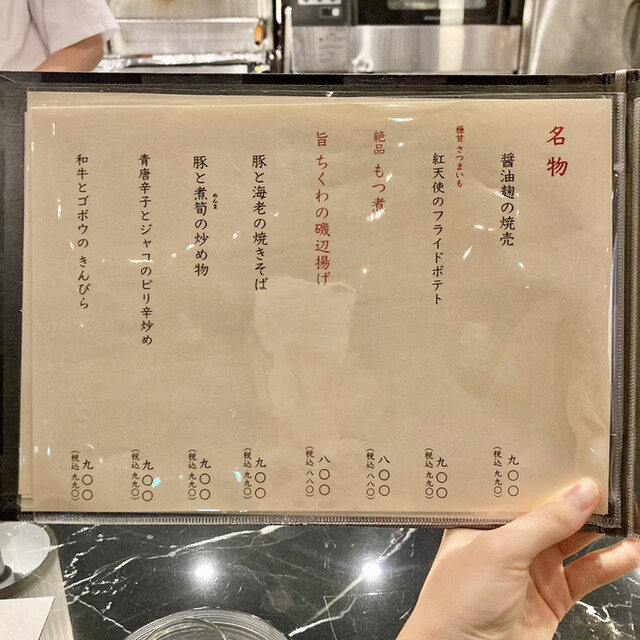 名物
醤油麹の焼売
九〇〇
(税込 九九〇)
極甘 さつまいも
紅天使のフライドポテト
九〇〇
(税込 九九〇)
絶品 もつ煮
八〇〇
(税込 八八〇)
旨 ちくわの磯辺揚げ
八〇〇
(税込 八八〇)
豚と海老の焼きそば
九〇〇
(税込 九九〇)
豚と煮筍の炒め物
めんま
九〇〇
(税込 九九〇)
青唐辛子とジャコのピリ辛炒め
九〇〇
(税込 九九〇)
和牛とゴボウの きんぴら
九〇〇
(税込 九九〇)